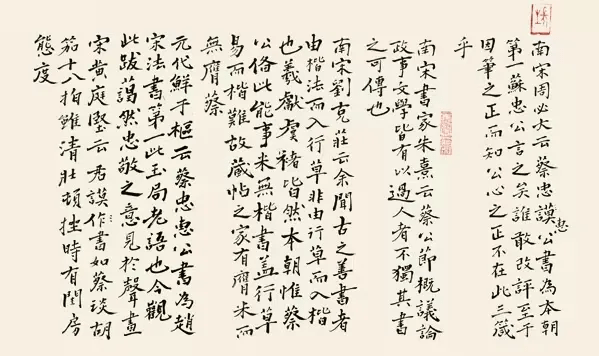 南宋周必大云蔡忠謨公書為本朝
惠
第一蘇忠公言之矣誰敢改評至于
因筆之正而知公心之正不在此三箴
乎
南宋書家朱熹云蔡公節概議論
政事文學皆有以過人者不獨其書
之可傳也
南宋劉克莊云余聞古之善書者
由楷法而入行草非由行草而入楷
也羲獻虞褚皆然本朝惟蔡
公俻此能事米無楷書蓋行草
易而楷難故藏帖之家有贗米而
無贗蔡
元代鮮于樞云蔡忠惠公書為趙
宋法書第一此玉局老語也今觀
此跋藹然忠敬之意見於聲畫
宋黄庭堅云君謨作書如蔡琰胡
笳十八拍雖清壯頓挫時有閨房
態度